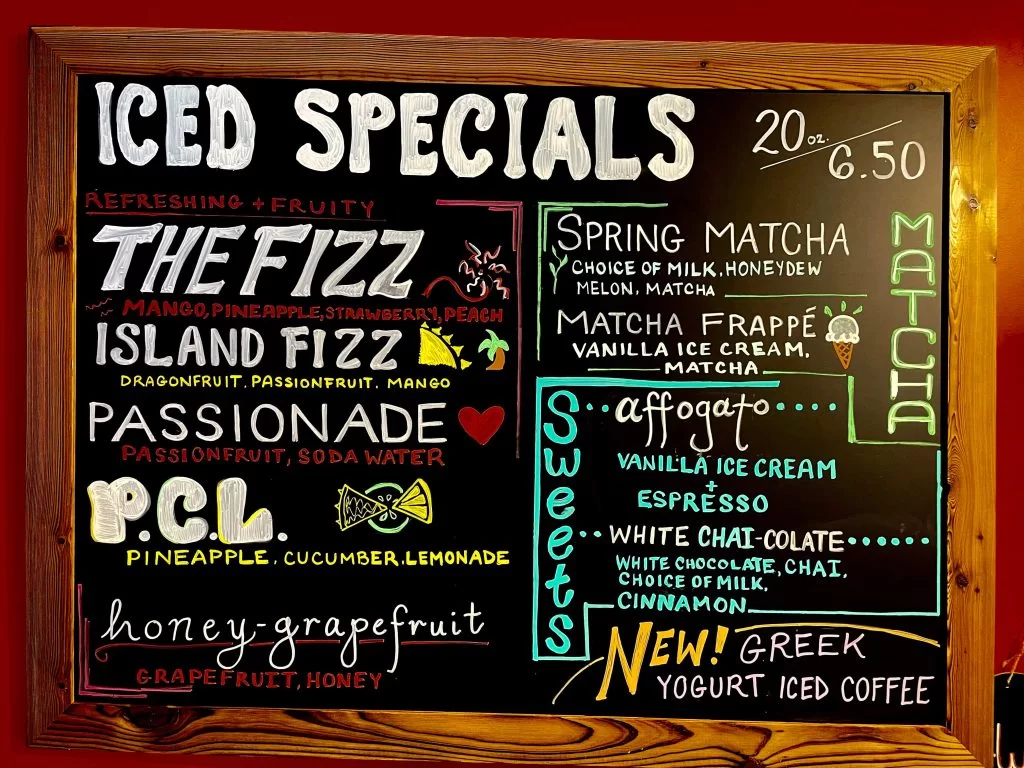 ICED SPECIALS
20 oz. 6.50
REFRESHING + FRUITY
THE FIZZ
MANGO, PINEAPPLE, STRAWBERRY, PEACH
ISLAND FIZZ
DRAGONFRUIT. PASSIONFRUIT. MANGO
PASSIONADE
PASSIONFRUIT, SODA WATER
P.C.L.
PINEAPPLE, CUCUMBER, LEMONADE
honey-grapefruit
GRAPEFRUIT, HONEY
MATCHA
SPRING MATCHA
CHOICE OF MILK, HONEYDEW
MELON, MATCHA
MATCHA FRAPPÉ
VANILLA ICE CREAM,
MATCHA
Sweets
affogato
VANILLA ICE CREAM
+
ESPRESSO
WHITE CHAI-COLATE
WHITE CHOCOLATE, CHAI,
CHOICE OF MILK,
CINNAMON
NEW! GREEK
YOGURT ICED COFFEE